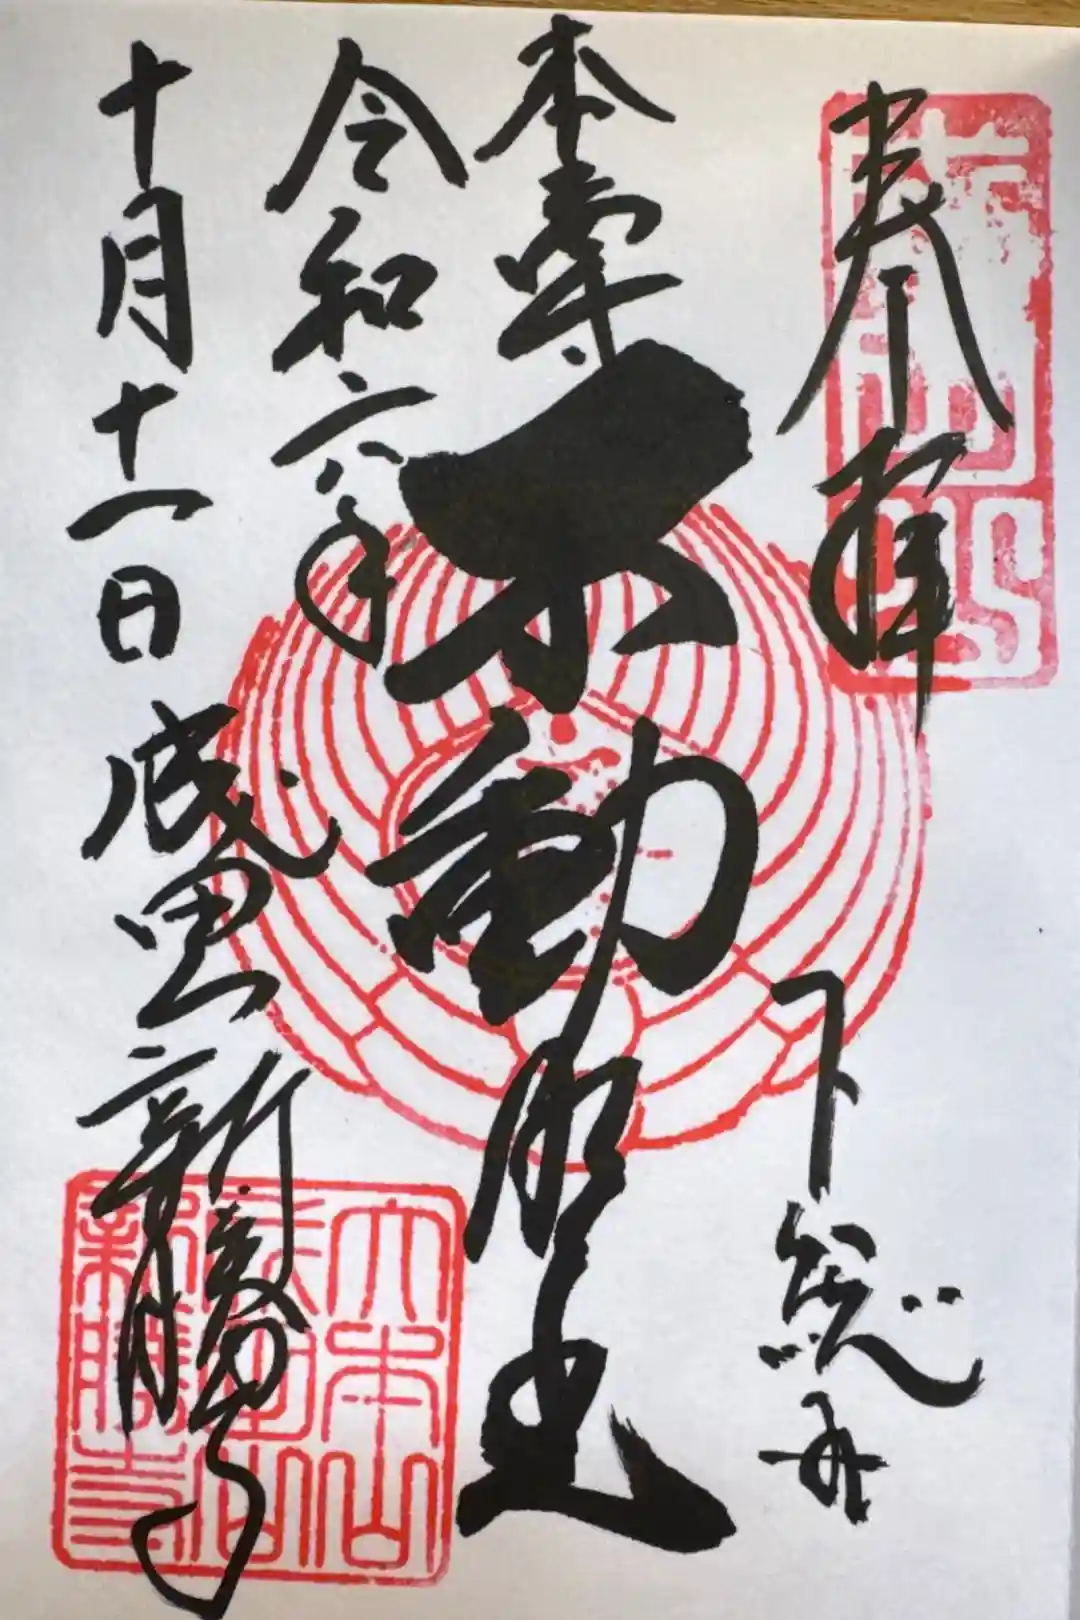 奉拝
下総州
本尊
不動明王
令和六年
十月十一日
成田山新勝寺
大本山
成田山
新勝寺